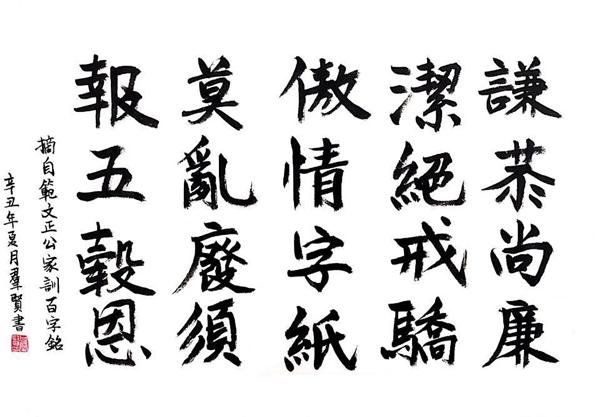 謙恭尚廉
潔絕戒驕
傲情字紙
莫亂廢須
報五穀恩
摘自範文正公家訓百字銘
辛丑年夏月群賢書